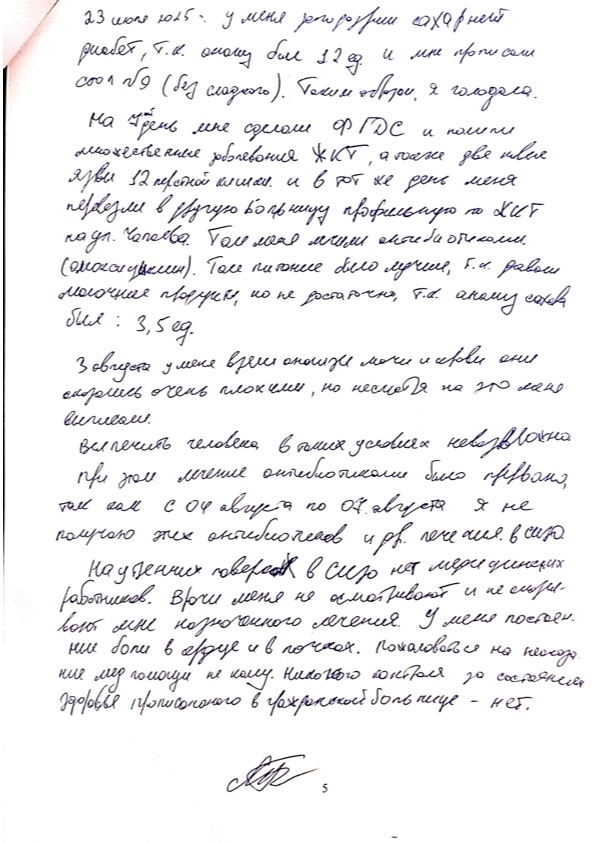 23 июля 2025 г. у меня заподозрили сахарный
диабет, т.к. анализ был 12 ед. и мне прописали
стол №9 (без сладкого). Таким образом, я голодала.
На 4й день мне сделали ФГДС и нашли
множественные заболевания ЖКТ, а также две новые
язвы 12 перстной кишки. и в тот же день меня
перевезли в другую больницу профильную по ЖКТ
на ул. Чапаева. Там меня лечили антибиотиками
(амоксициллин). Там питание было лучше, т.к. давали
молочные продукты, но не достаточно, т.к. анализ сахара
был : 3,5 ед.
3 августа у меня взяли анализы мочи и крови они
оказались очень плохими, но несмотря на это меня
выписали.
Вылечить человека в таких условиях невозможно
при этом лечение антибиотиками было прервано,
так как с 04 августа по 07. августа я не
получаю этих антибиотиков и др. лечения. в сизо
На утренних поверках в СИЗО нет медицинских
работников. Врачи меня не осматривают и не оказы-
вают мне назначенного лечения. У меня постоян-
ные боли в сердце и в почках. Пожаловаться на неоказа-
ние мед помощи не кому. Никакого контроля за состоянием
здоровья прописанного в гражданской больнице – нет.
5